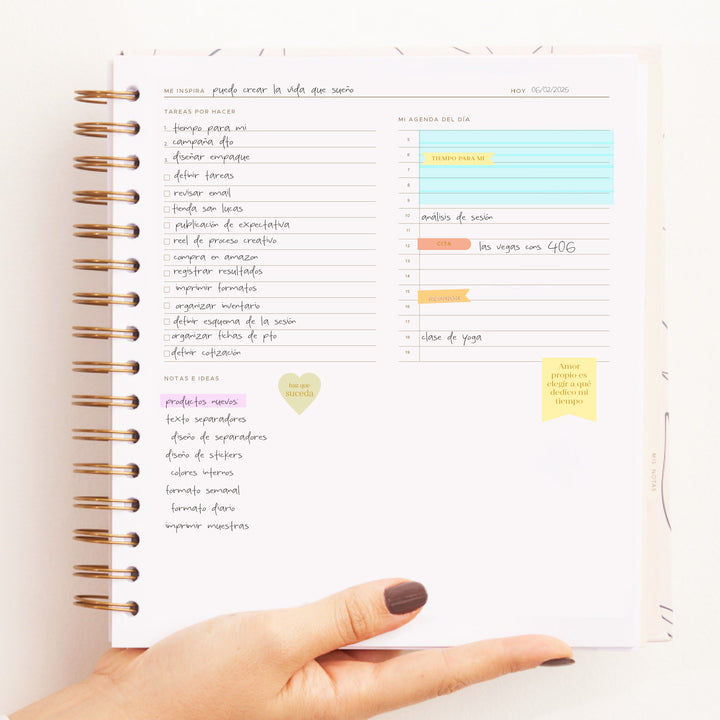 ME INSPIRA puedo crear la vida que sueño HOY 06/02/2026
TAREAS POR HACER
1. tiempo para mi
2. campaña dto
3. diseñar empaque
definir tareas
revisar email
tienda san lucas
publicación de expectativa
reel de proceso creativo
compra en amazon
registrar resultados
imprimir formatos
organizar inventario
definir esquema de la sesión
organizar fichas de pto
definir cotización
MI AGENDA DEL DÍA
5
6 TIEMPO PARA MI
7
8
9
10 análisis de sesión
11
12 CITA las vegas cons. 406
13
14
15 REUNIÓN
16
17
18 clase de yoga
19
NOTAS E IDEAS
haz que
suceda
productos nuevos:
texto separadores
diseño de separadores
diseño de stickers
colores internos
formato semanal
formato diario
imprimir muestras
Amor
propio es
elegir a qué
dedico mi
tiempo
MIS NOTAS